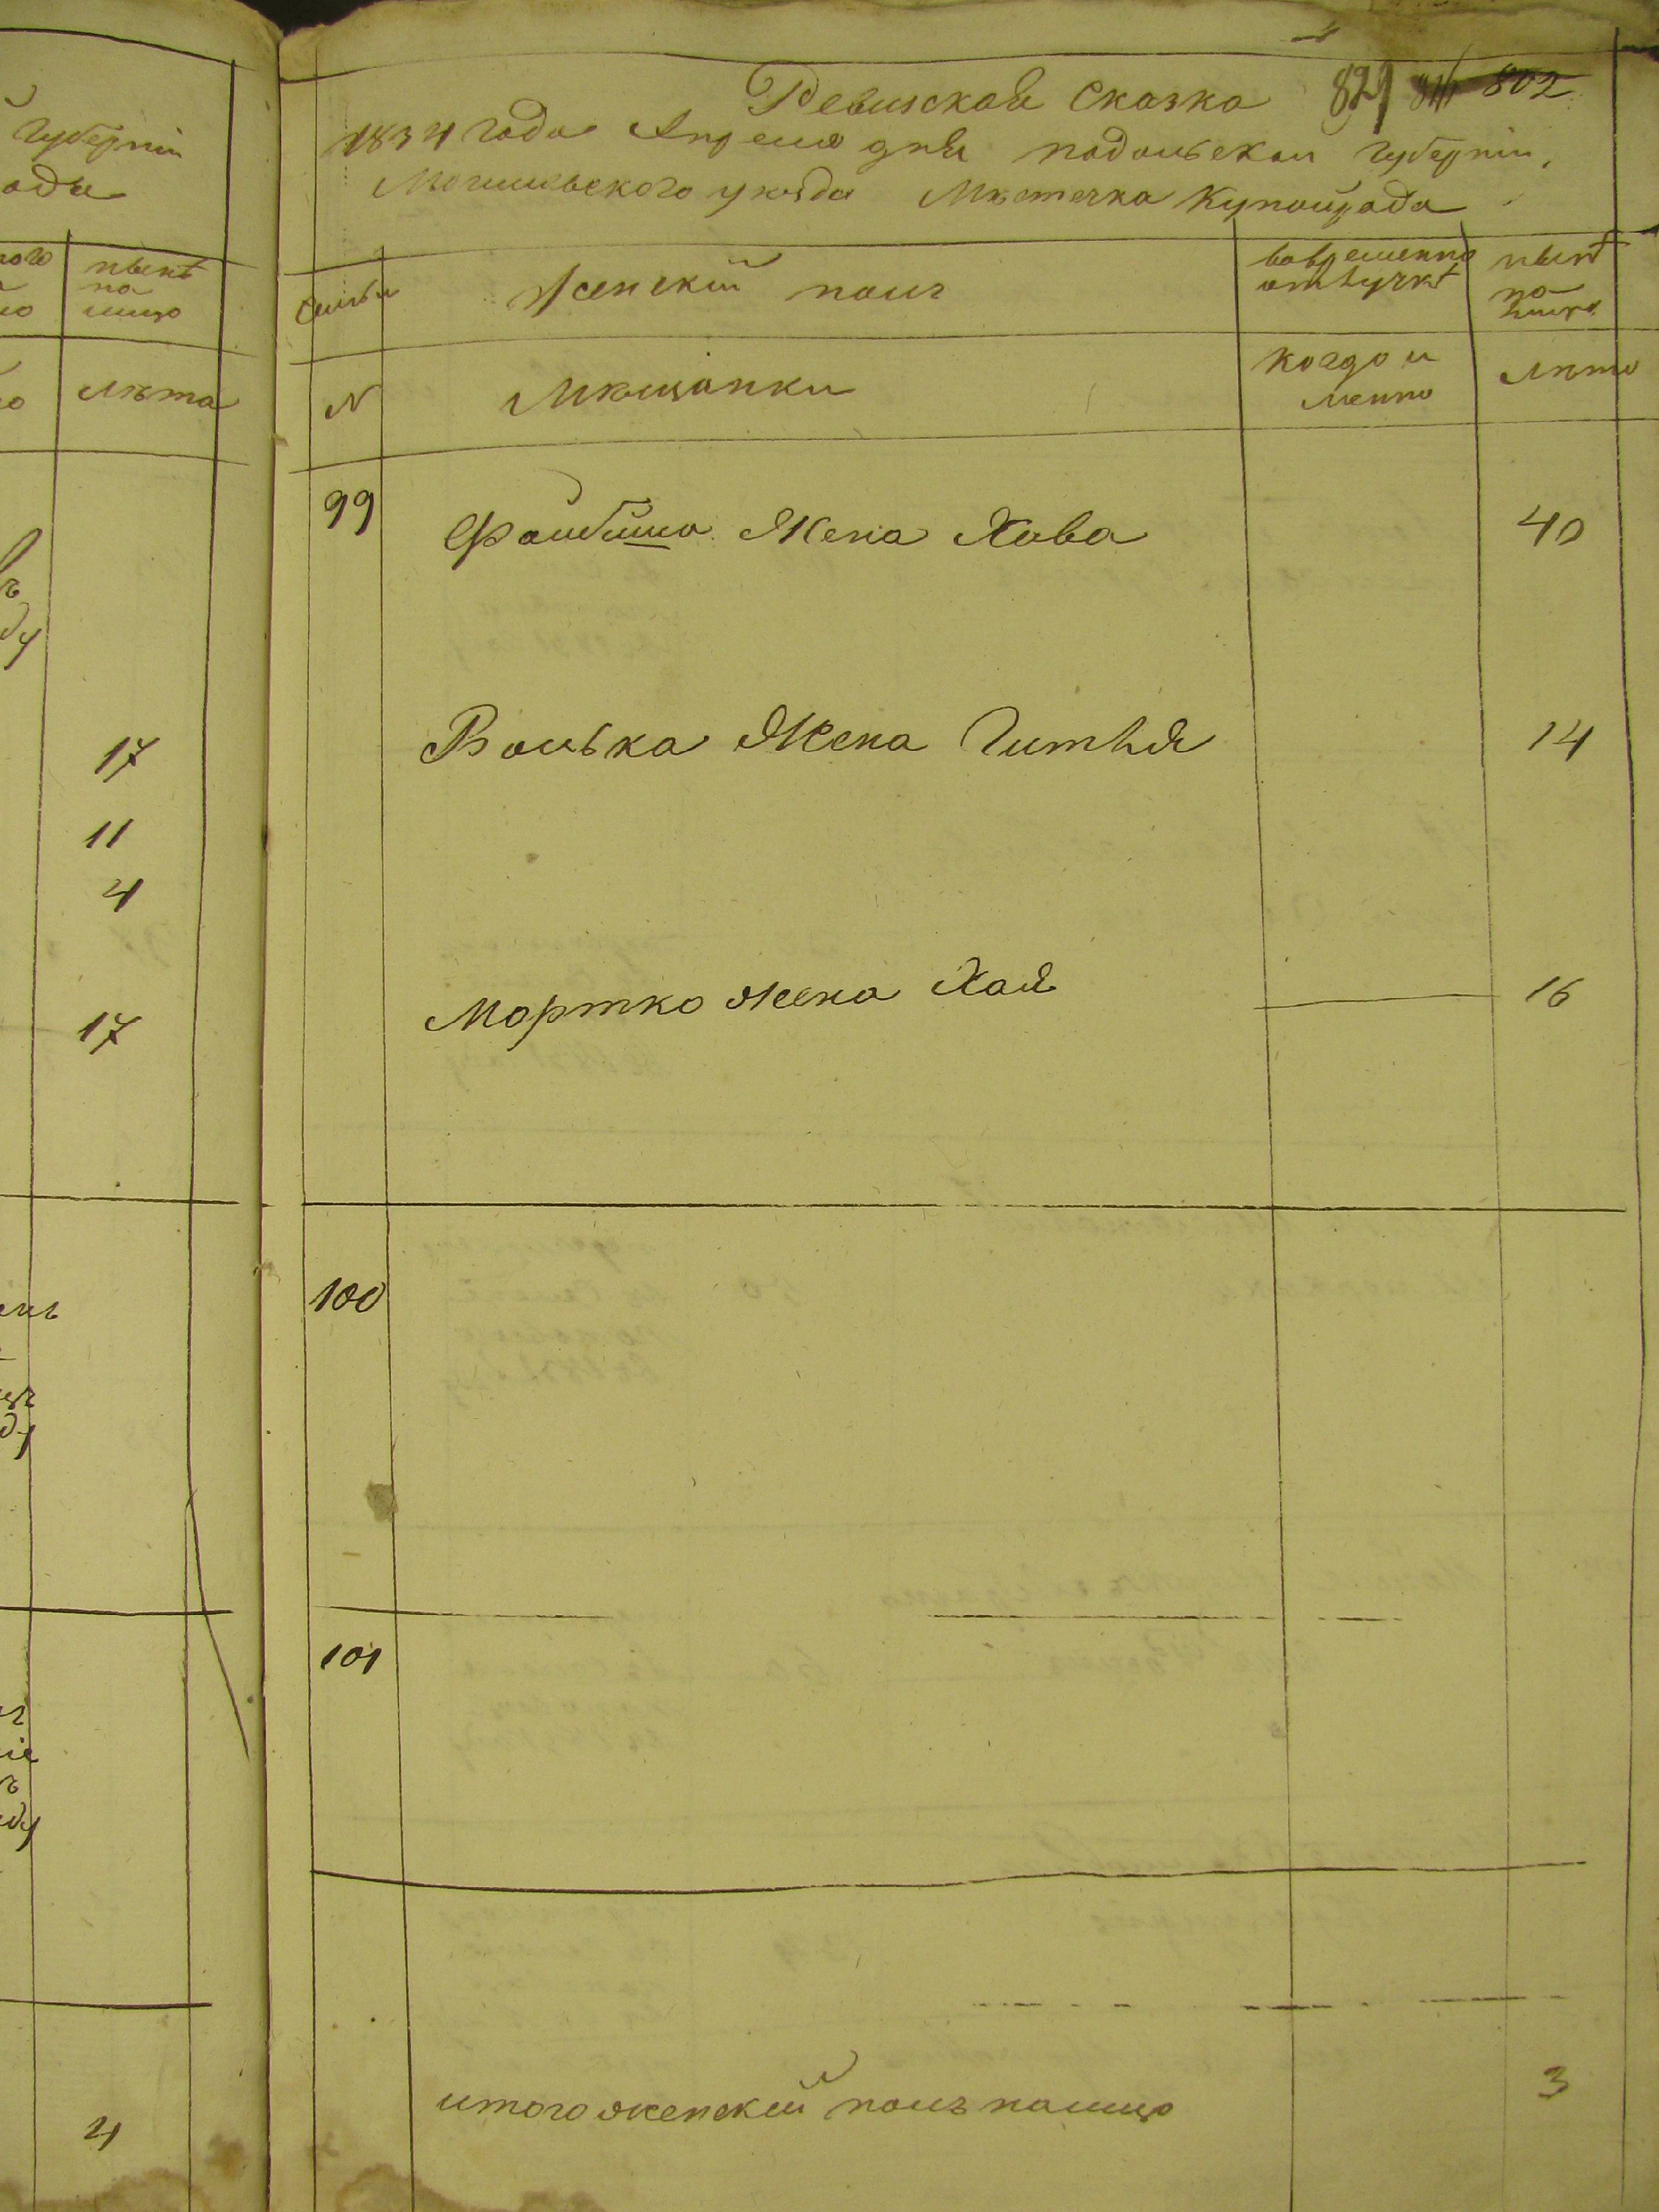 губерніи
ныне
на
лицо
лѣта
17
11
4
17
4
Ревизская Сказка 829 802
1834 года Апреля дня подольской губерніи
Могилевского уезда Мѣстечка Купойгода
Семьи
Женскій полъ
вовременно
отлучке
ныне
на
лицо
N
Мѣщанки
когда и
лета
99
Файбиша Жена Хава
40
Волька Жена Гитля
14
Мортко жена Хая
16
100
101
итого женскій полъ налицо
3